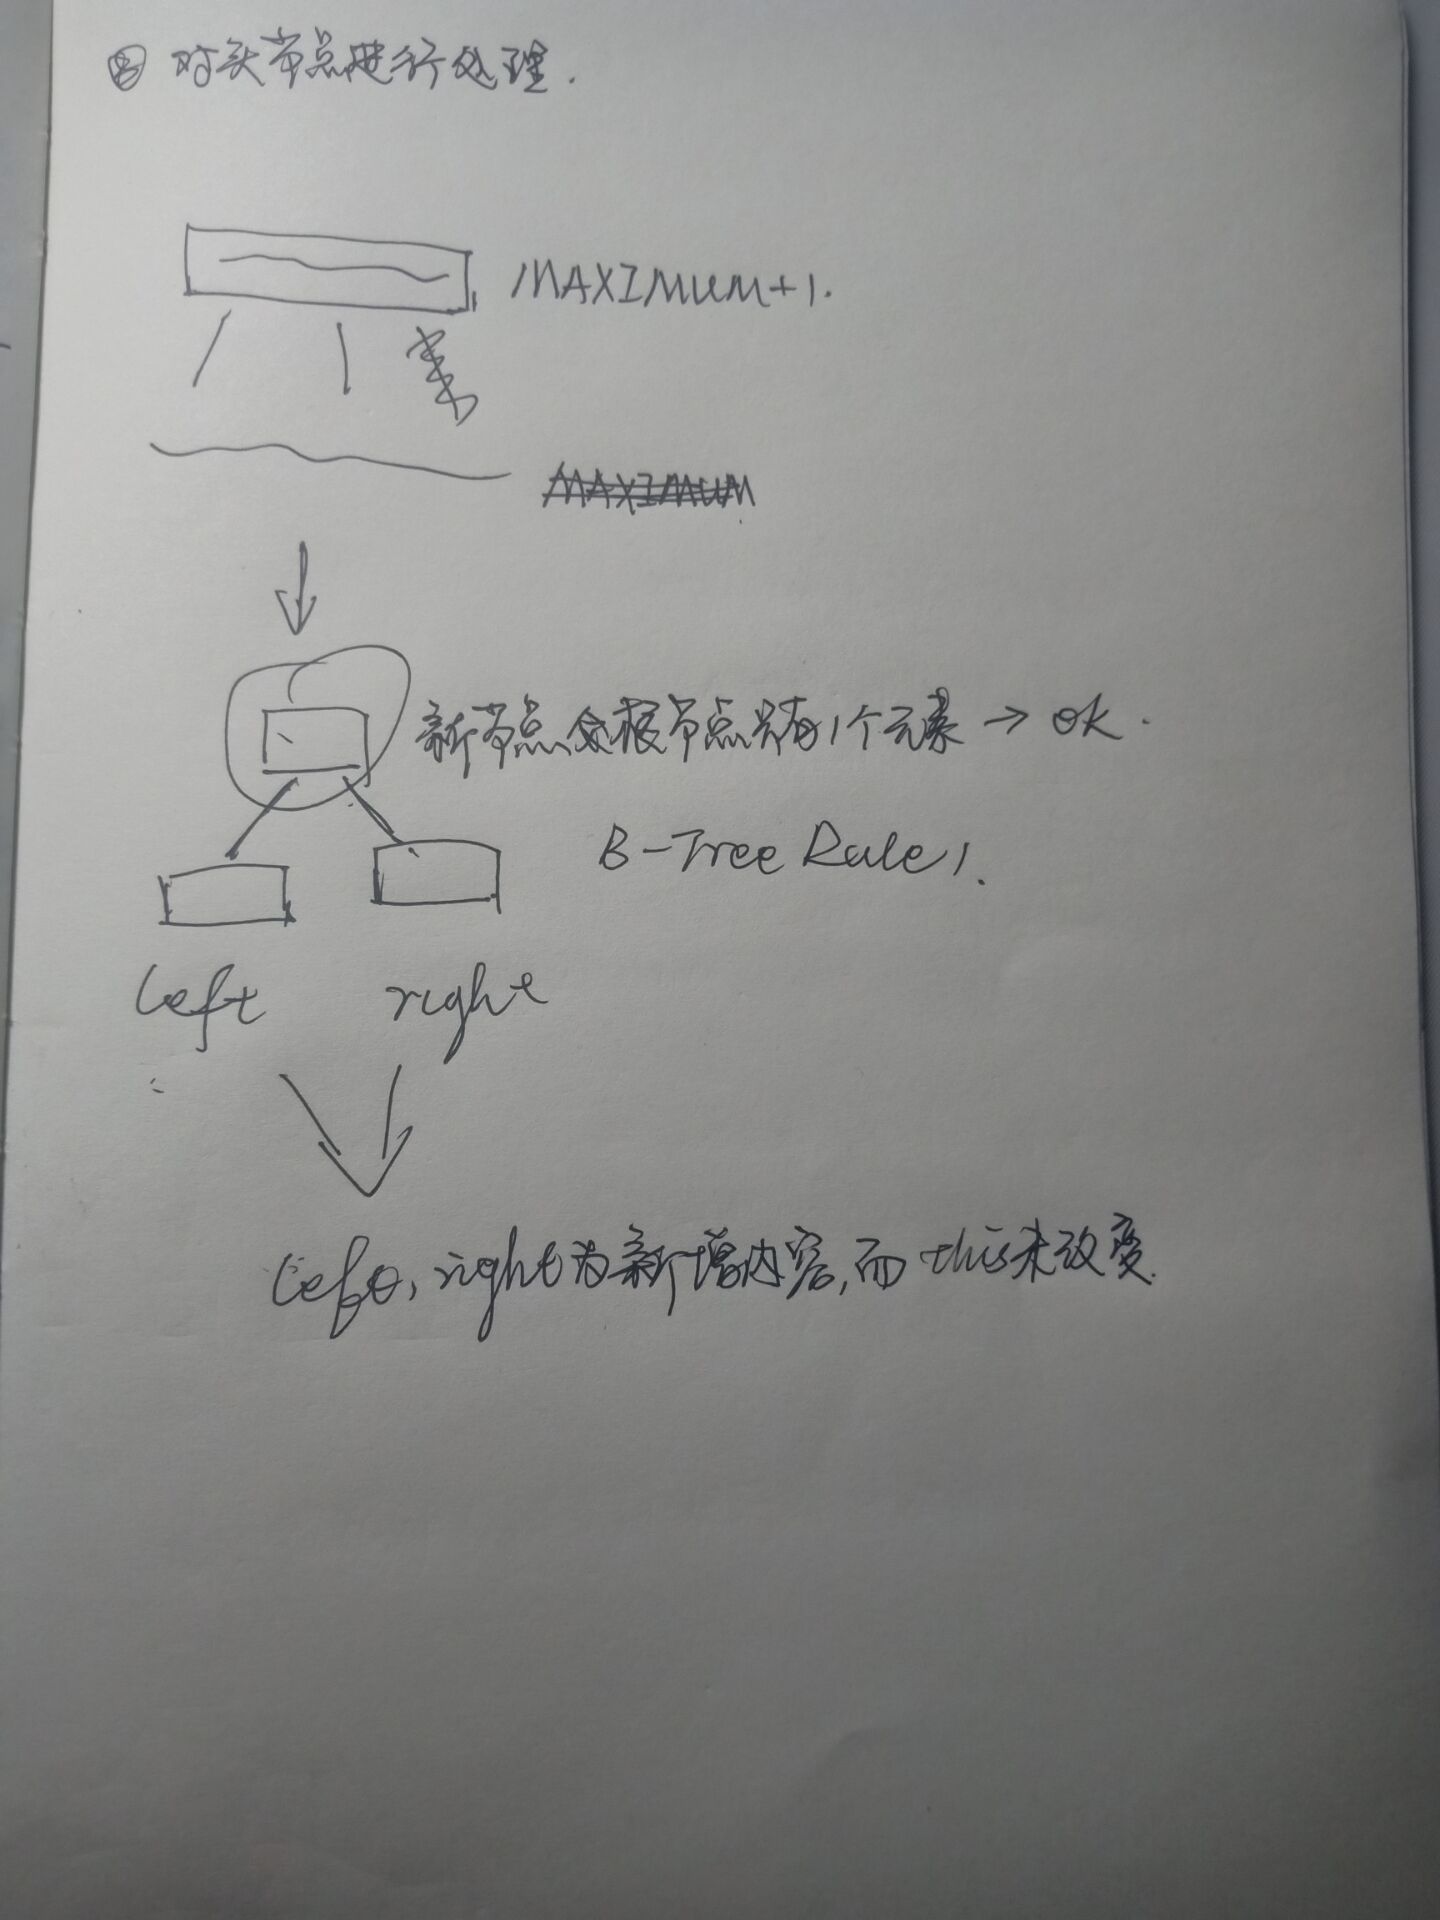 对头节点进行处理.
MAXIMUM+1.
MAXIMUM
新节点 根节点只有1个元素 → OK.
B-Tree Rule 1.
left right
left, right为新增内容,而this未改变.